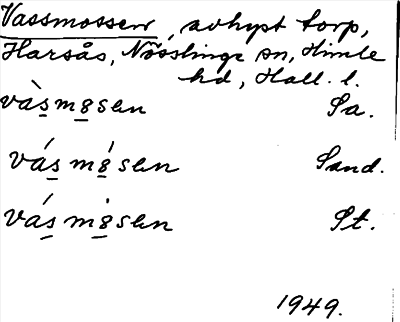 Vassmossen, avhyst torp,
Harsås, Nösslinge sn, Himle
hd, Hall. l.
vàs møsen Sa.
vás møsen Sand.
vás møsen St.
1949.